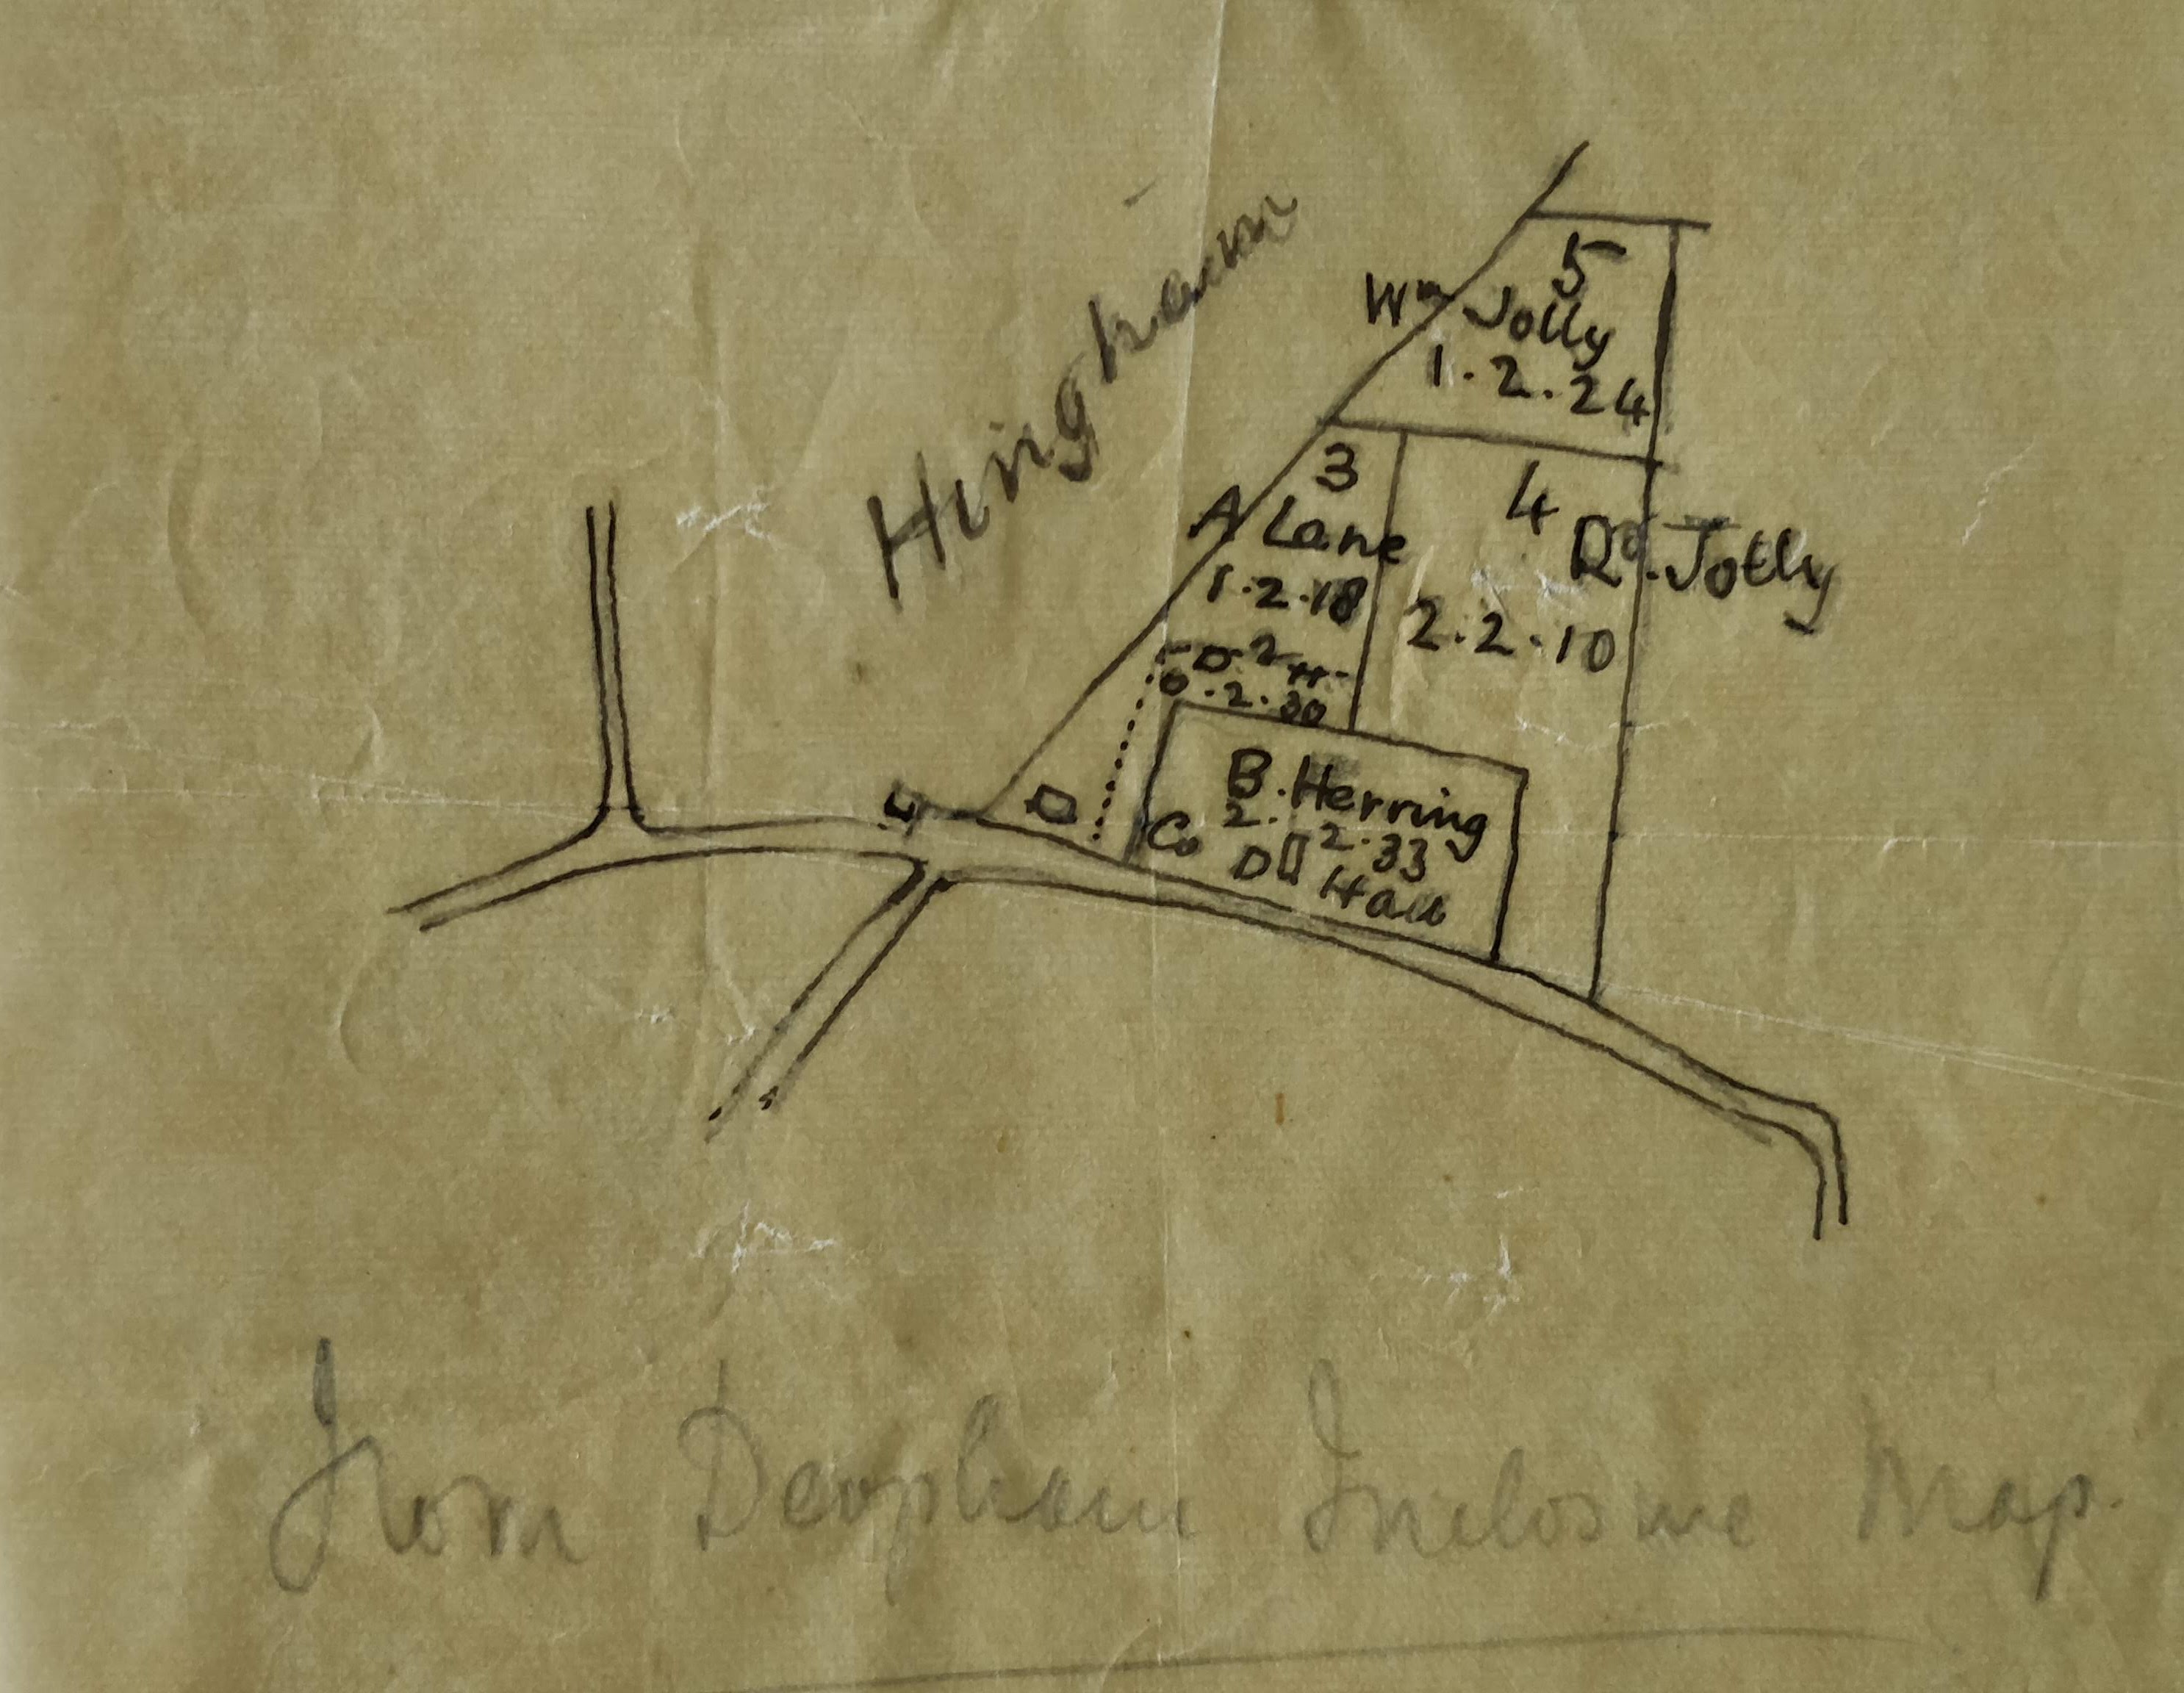 Hingham
5
Wm Jolly
1.2.24
3
A Lane
1.2.18
4
Rd. Jolly
2.2.10
2
0.2.30
B. Herring
2.2.33
Co
Hall
From Deopham Inclosure Map.